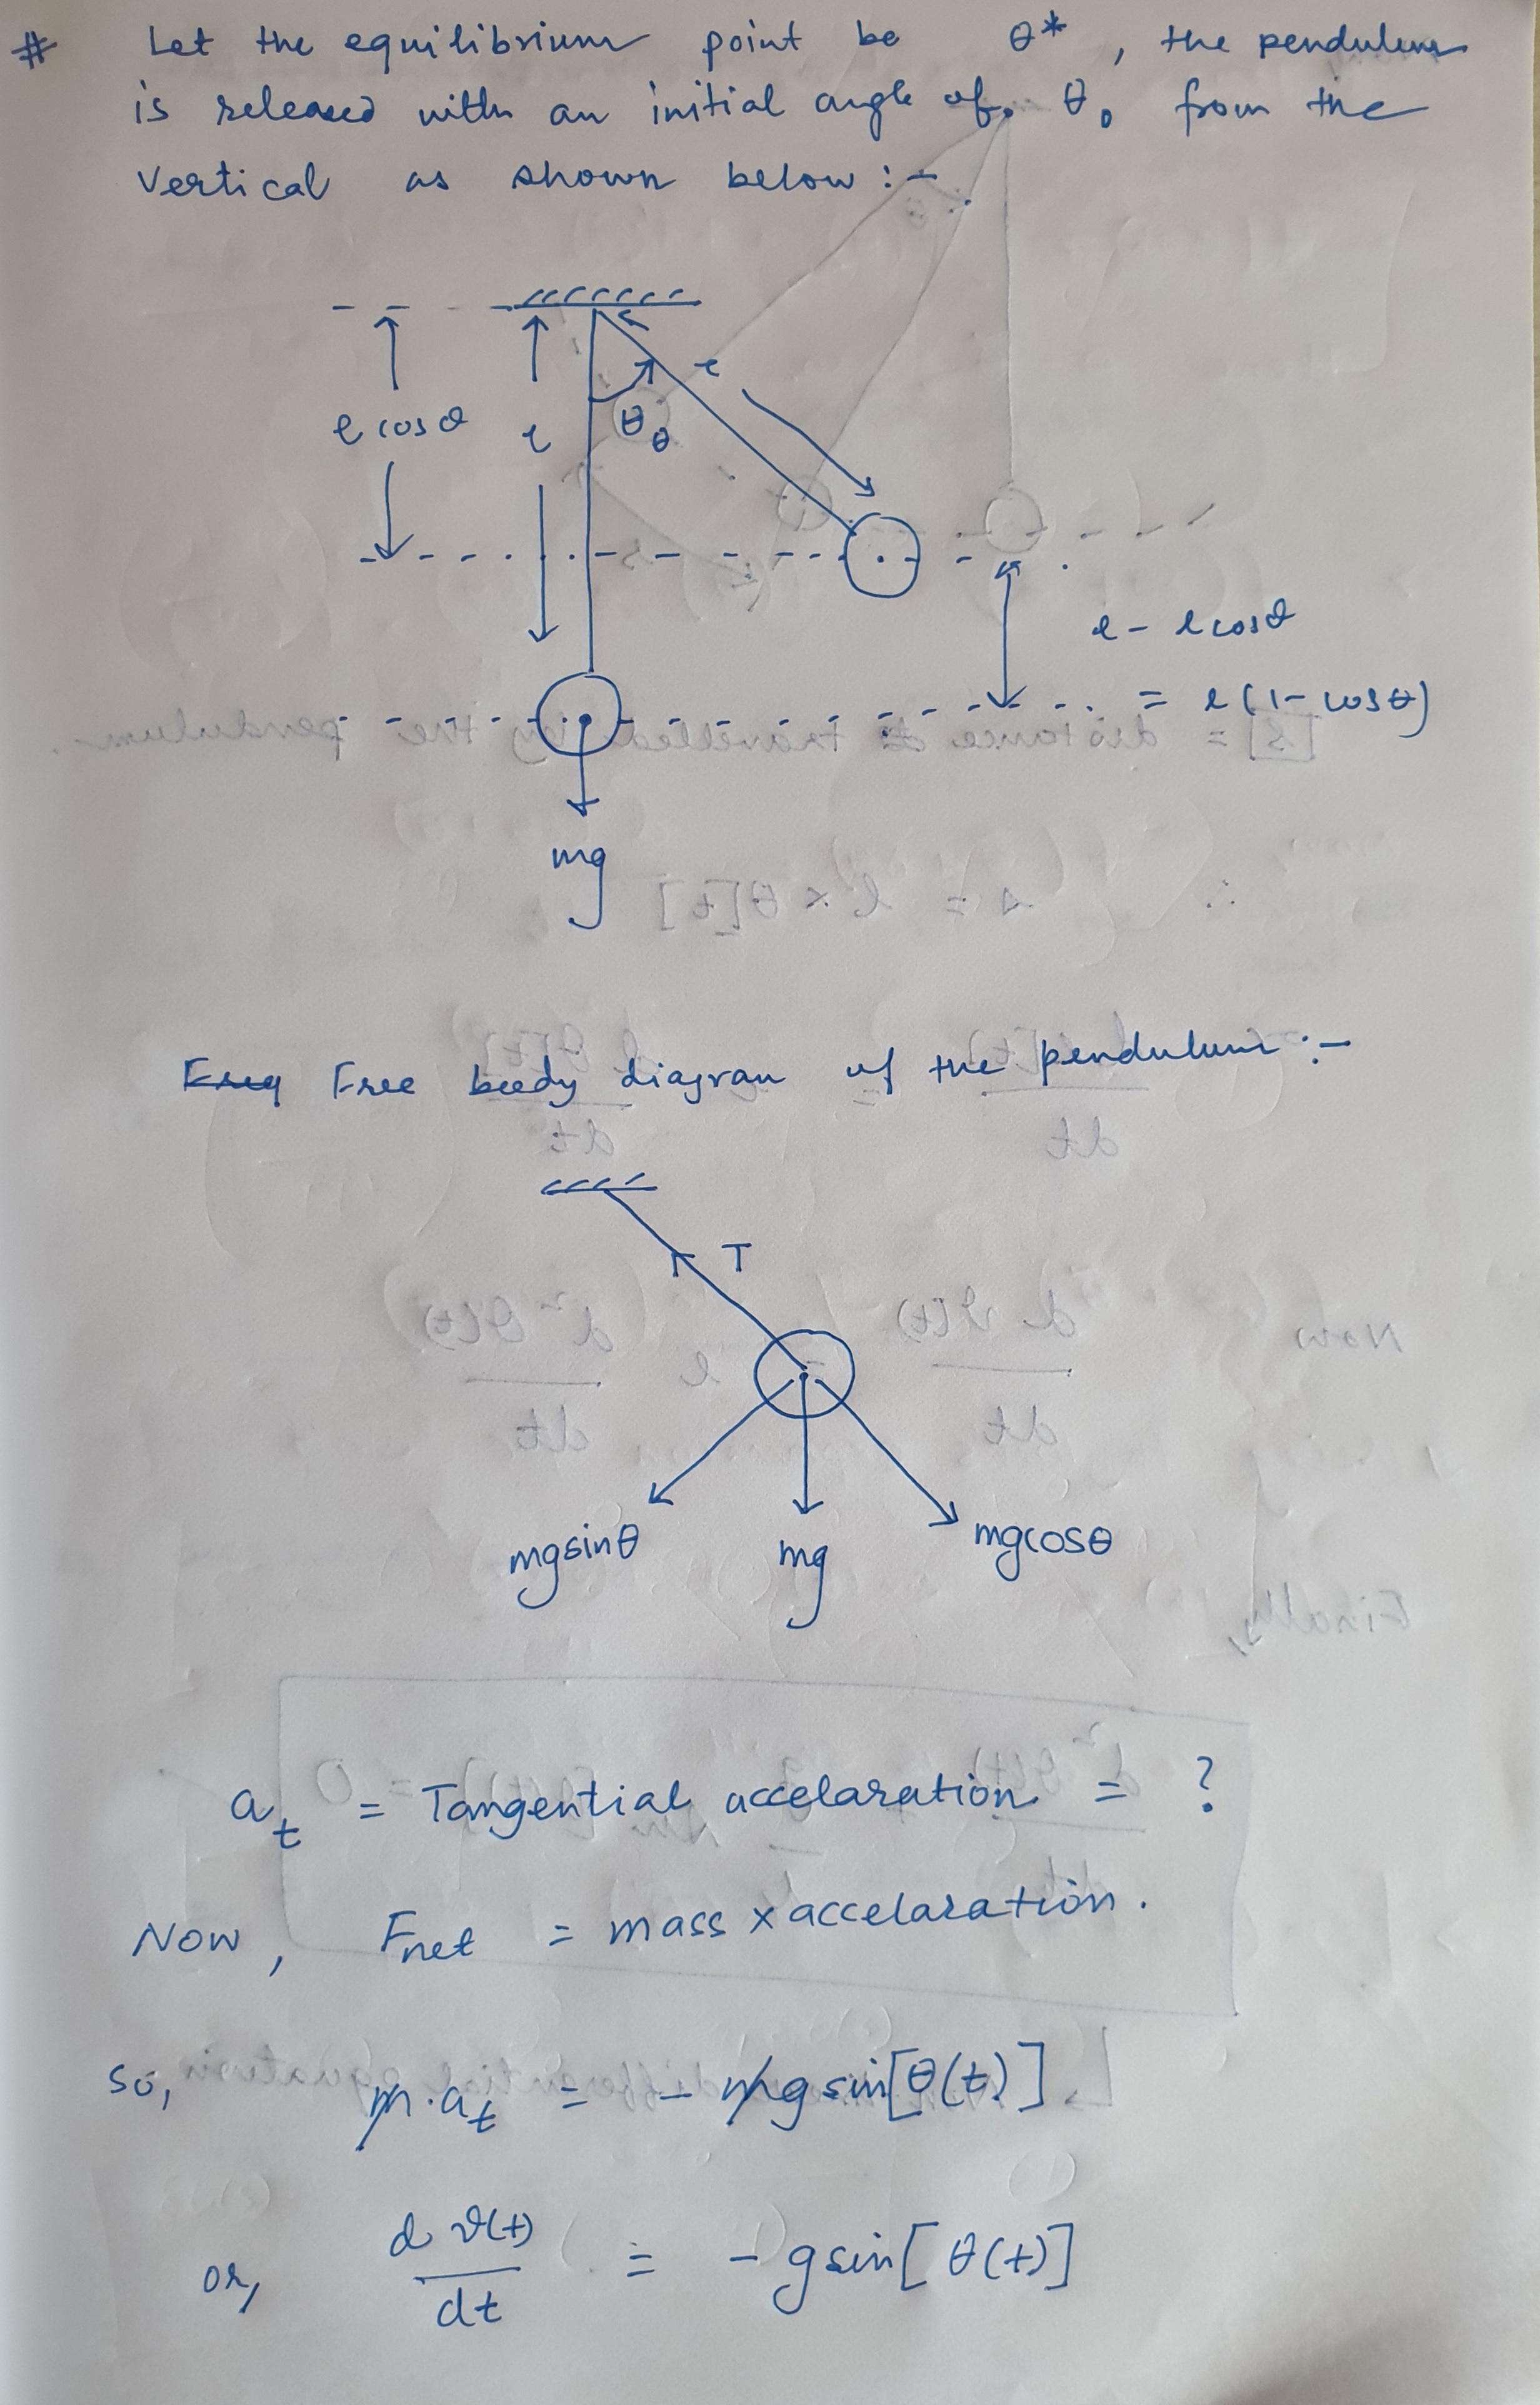 # Let the equilibrium point be θ*, the pendulum
is released with an initial angle of θ₀ from the
vertical as shown below :-
l cosθ
l
θ₀
l
l - l cosθ
= l(1-cosθ)
mg
[s] = distance travelled by the pendulum.
∴ s = l × θ[t]
Free body diagram of the pendulum :-
dt
dt
T
Now
d v(t)
dt
l
d² θ(t)
dt
mgsinθ
mg
mgcosθ
Finally,
a_t = Tangential accelaration = ?
Now, F_net = mass x accelaration.
so, m.a_t = - mg sin[θ(t)]
or, d v(t)
dt
= - gsin[θ(t)]